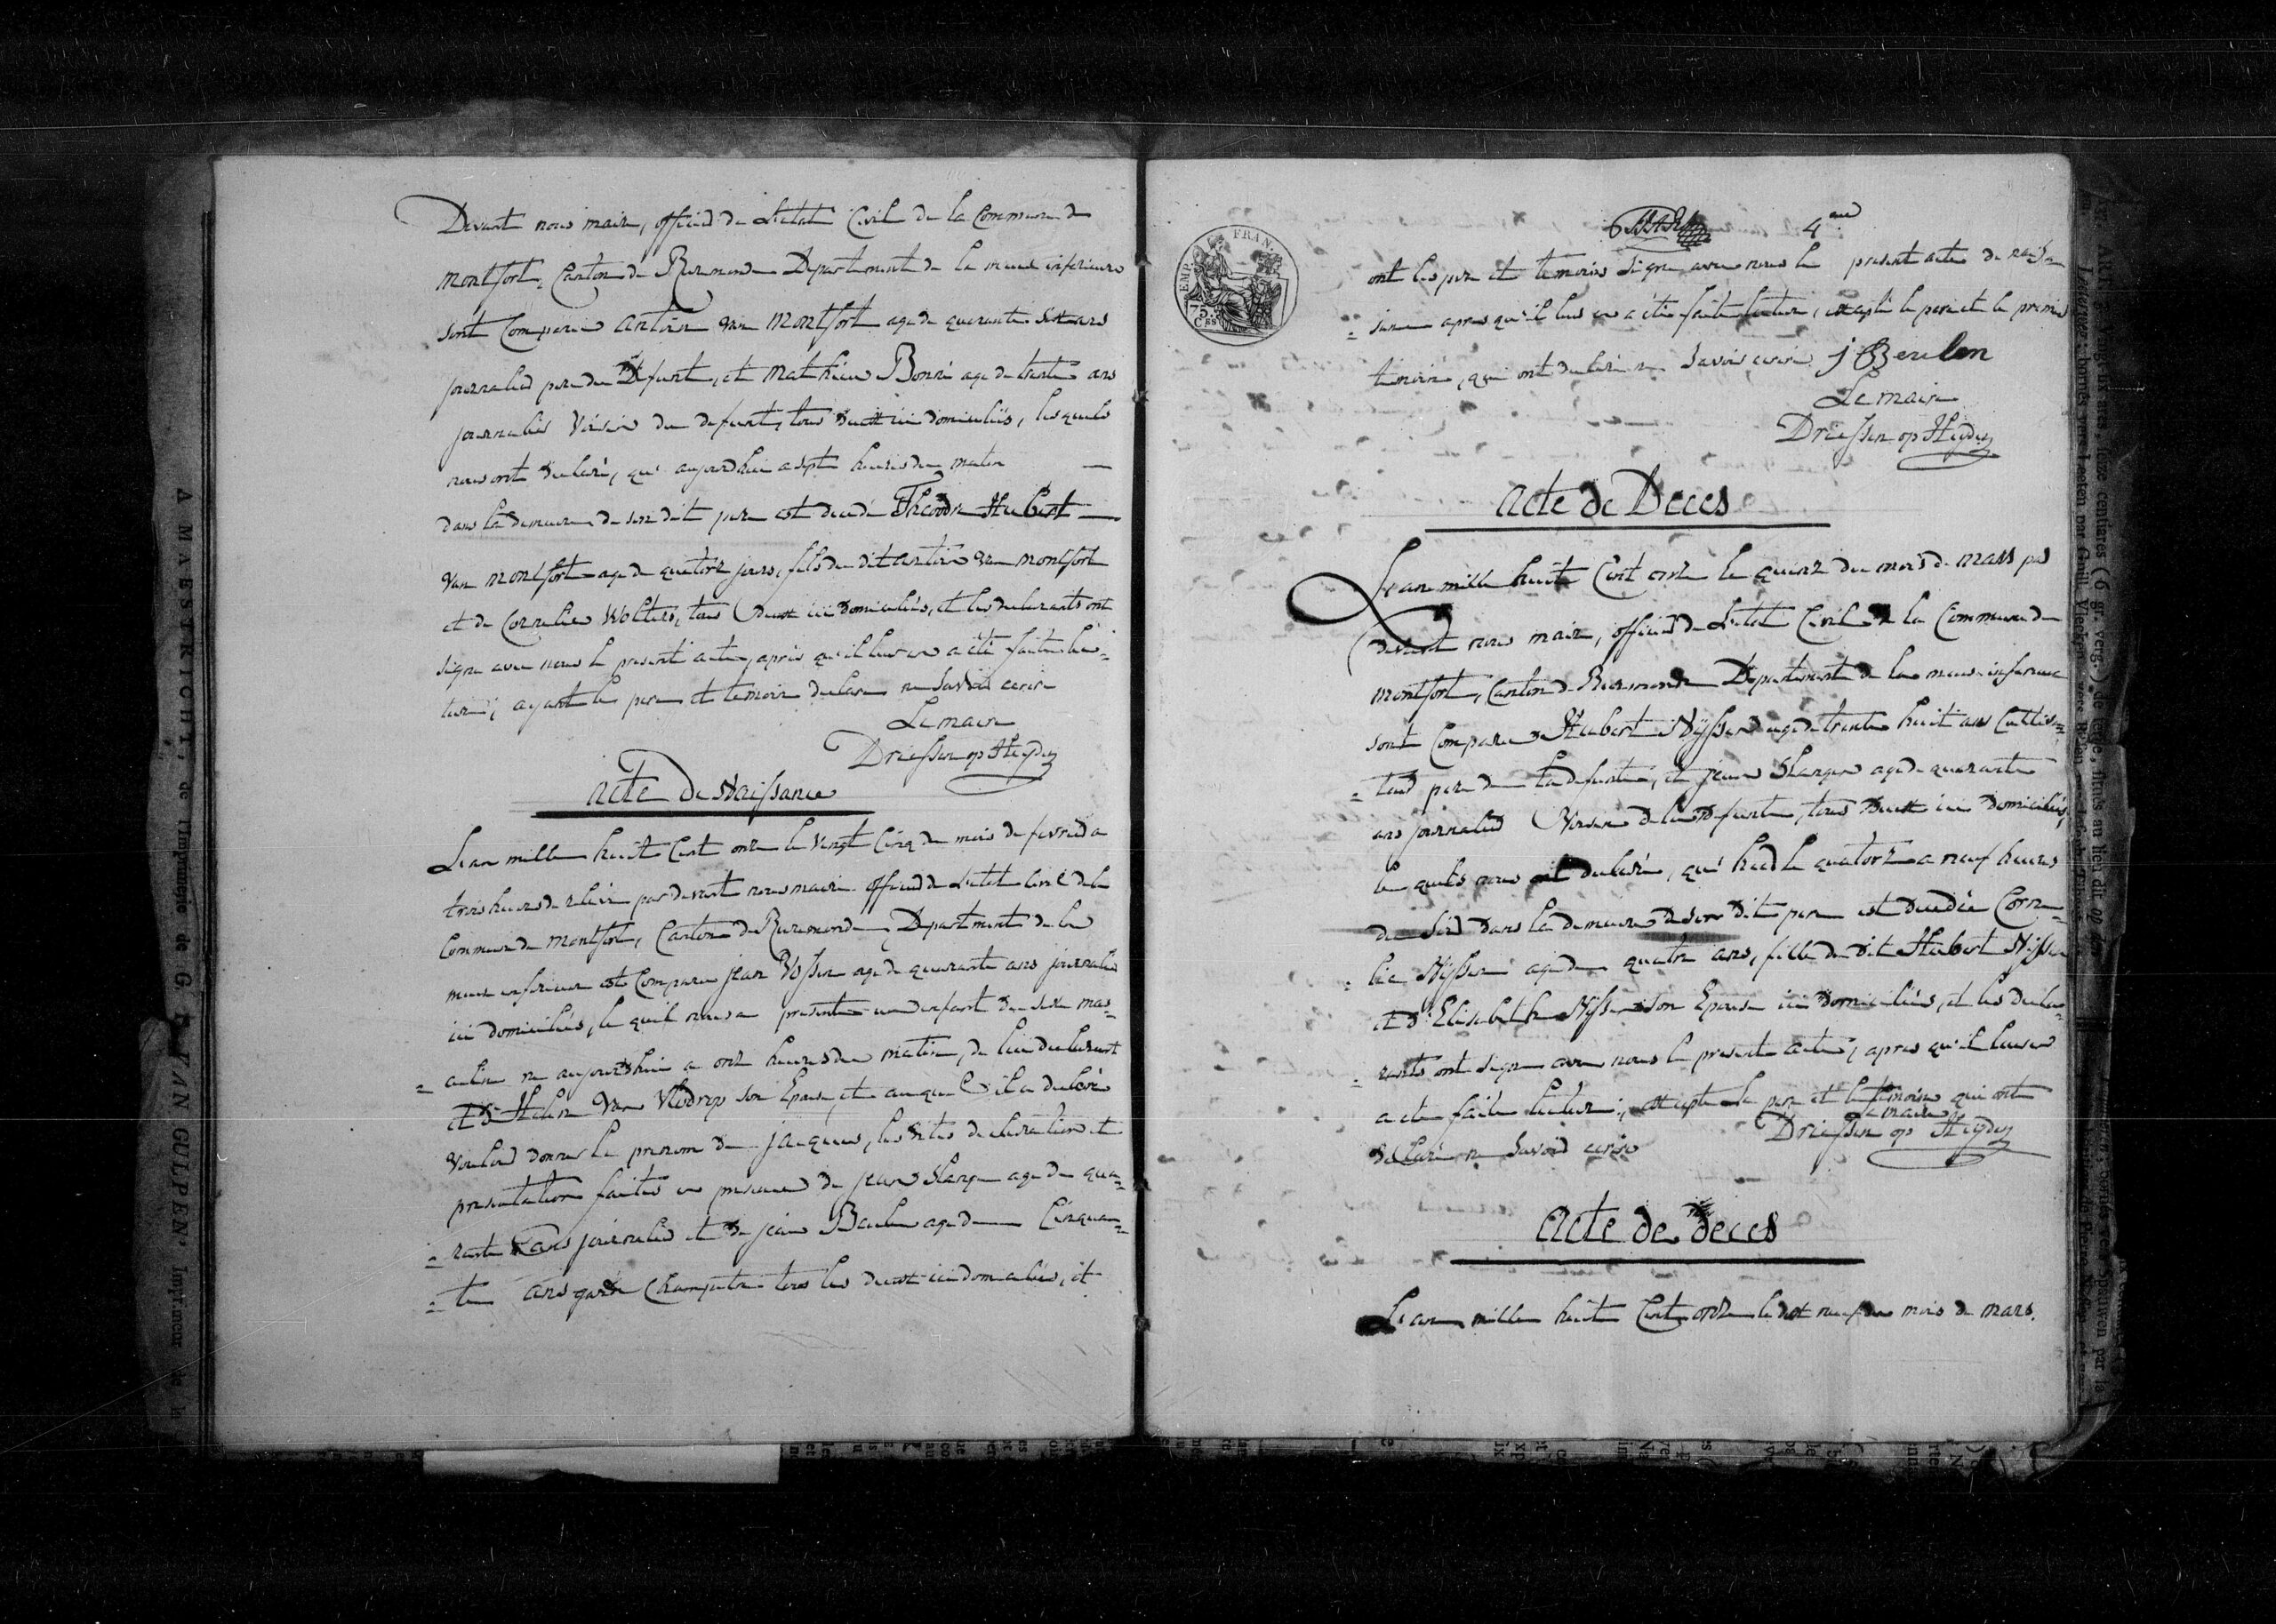 Devant nous maire, officier de L'etat Civil de la Commune de
Montfort, Canton de Ruremonde Departement de la meuse inferieure
sont Comparus antoine van montfort age de quarante six ans
journalier pere du Defunt, et mathieu Bonné age de trente ans
journalier Voisin du defunt, tous deux ici domiciliés, lesquels
nous ont declaré, que aujourdhui a sept heures du matin
dans la demeure de son dit pere est decedé Theodor Hubert
van montfort age de quatorze jours, fils du dit antoine van montfort
et de Cornelie Wolters, tous deux ici Domiciliés, et les declarants ont
signe avec nous le present acte, après qu'il leur en a été faite lec=
ture; ayant le pere et temoin declare ne Savoir ecrire
Le maire
Driessen op Heyden
acte de Naissance
L'an mille huit Cent onze le vingt Cinq du mois de fevrier a
trois heures de relevée par devant nous maire officier de L'etat Civil de la
Commune de montfort, Canton de Ruremonde, Departement de la
meuse inferieure est Comparu jean Vossen age de quarante ans journalier
ici domiciliés, le quel nous a presente un enfant du sexe mas=
= culin ne aujourdhui a onze heures du matin, de lui declarant
et d'Helene Van Vlodrop son Epouse, et auquel il a declaré
vouloir donner le prenom de jacques, les dites declaration et
presentation faites en presence de jean Slangen age de qua=
= rante ans journalier et de jean Beulen age de Cinquan=
= te ans garde Champetre tous les deux ici domiciliés, et
4me
ont les pere et temoins signe avec nous le present acte de nais=
= sance apres qu'il leur en a été faite lecture, excepté le pere et le premier
temoin, qui ont declaré ne Savoir ecrire J Beulen
Le maire
Driessen op Heyden
acte de Deces
L'an mille huit Cent onze le quinze du mois de mars par
devant nous maire, officier de L'etat Civil de la Commune de
montfort, Canton de Ruremonde Departement de la meuse inferieure
sont Comparu Hubert Nÿssen age de trente huit ans Cultiva=
= teur pere de la defunte, et jean Slangen age de quarante
ans journalier Voisin de la Defunte, tous Deux ici Domiciliés,
les quels nous ont declaré, que hier le quatorze a neuf heures
du soir dans la demeure de son dit pere est decedée Corne=
= lie Nÿssen agée de quatre ans, fille du Dit Hubert Nÿssen
et d'Elisabeth Nÿssen son Epouse ici domiciliés, et les decla=
= rants ont signe avec nous le present acte, apres qu'il leur en
a ete faite lecture; excepte le pere et le temoin qui ont
declaré ne Savoir ecrire
Le maire
Driessen op Heyden
acte de deces
L'an mille huit Cent onze le dix neuf du mois de mars.
EMP. FRAN.
75. Ces
A MAESTRICHT, de l'Imprimerie de G. VAN GULPEN, Imprimeur